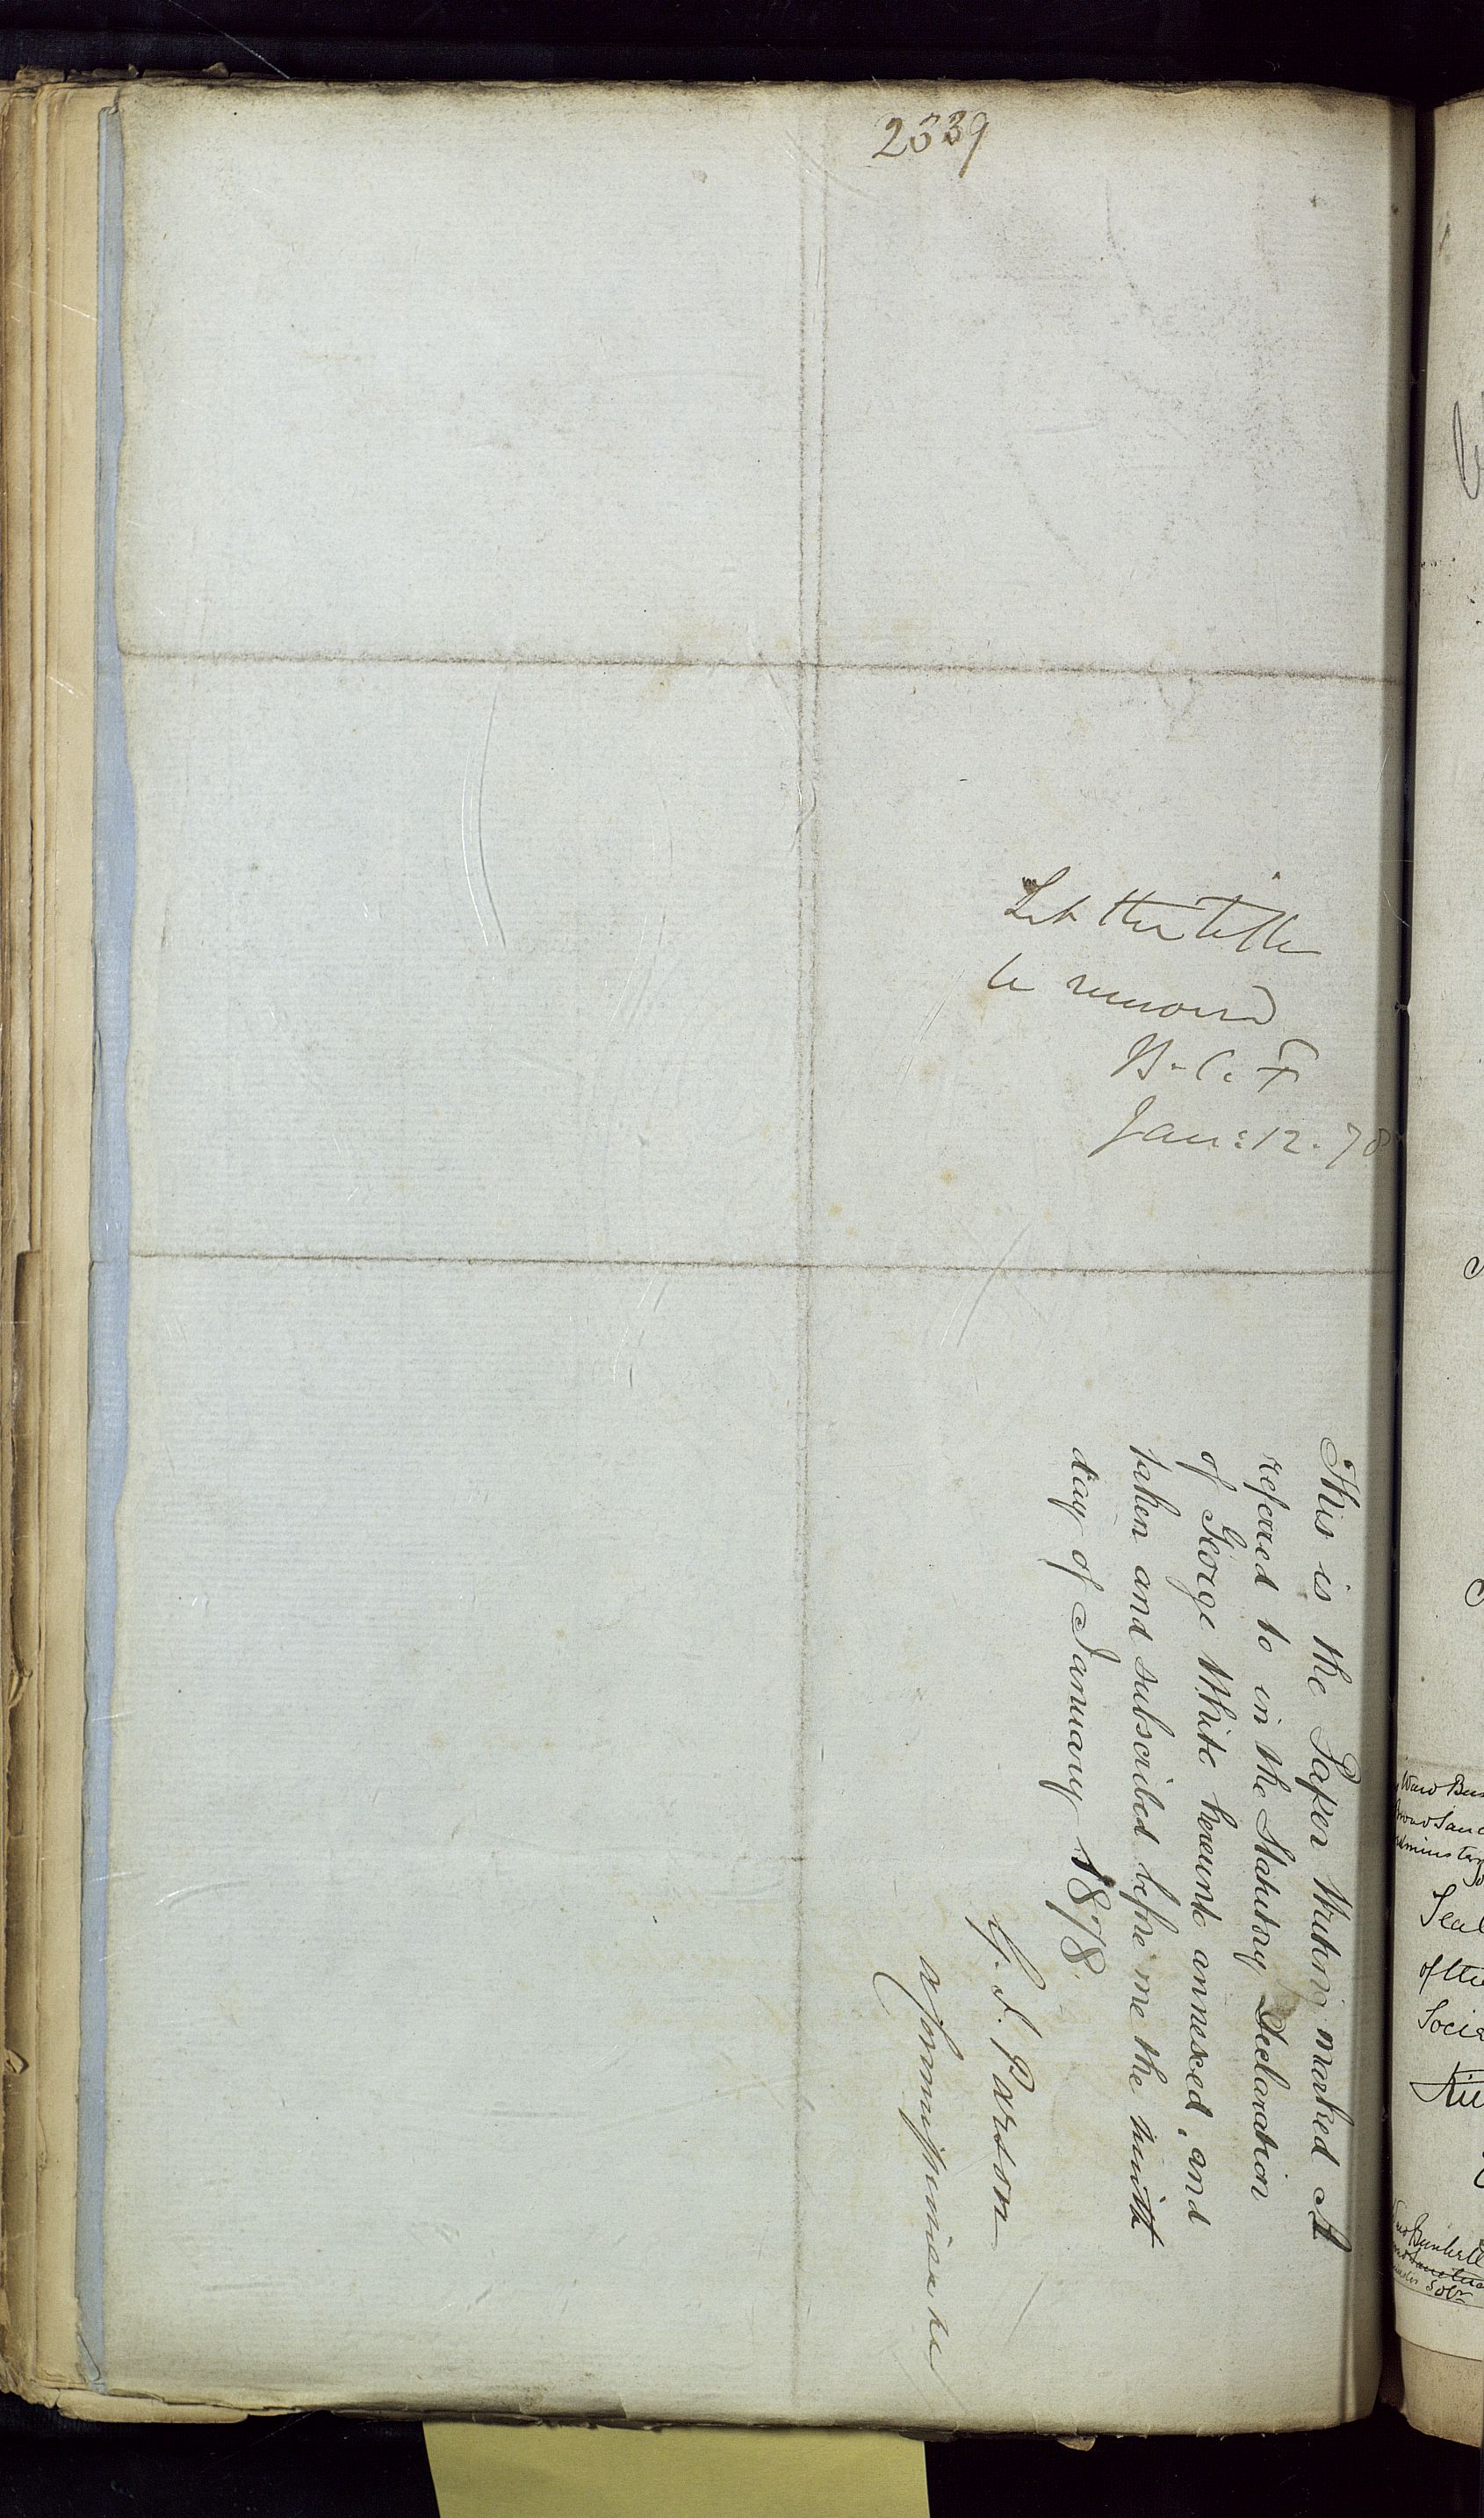 2339
Let the tables
be removed
B. C. F
Jan: 12. 78
This is the Paper Writing marked A
referred to in the Statutory Declaration
of George White hereunto annexed, and
taken and subscribed before me the ninth
day of January 1878.
G. S. Parson
a Commissioner &c
Seal
of the